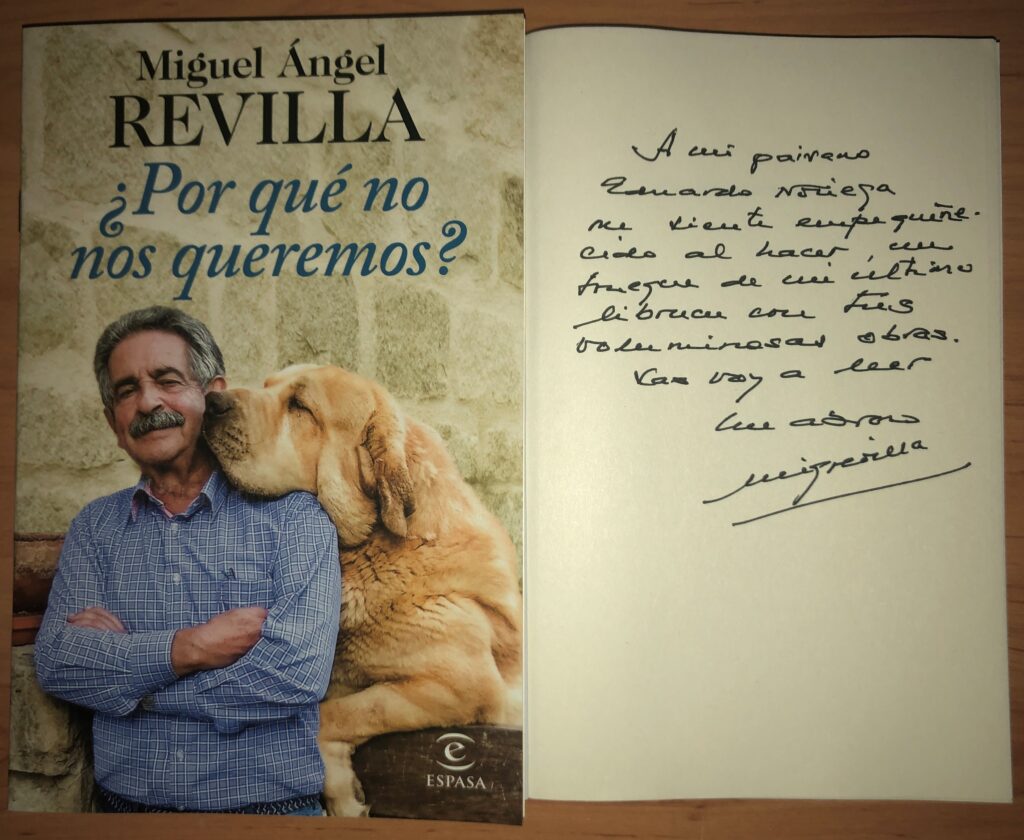 Miguel Ángel
REVILLA
¿Por qué no
nos queremos?
ESPASA
A mi paisano
Eduardo Noriega
me siento empequeñe-
cido al hacer un
trueque de mi último
librucu con tus
voluminosas obras.
Las voy a leer
Un abrazo
Migrevilla